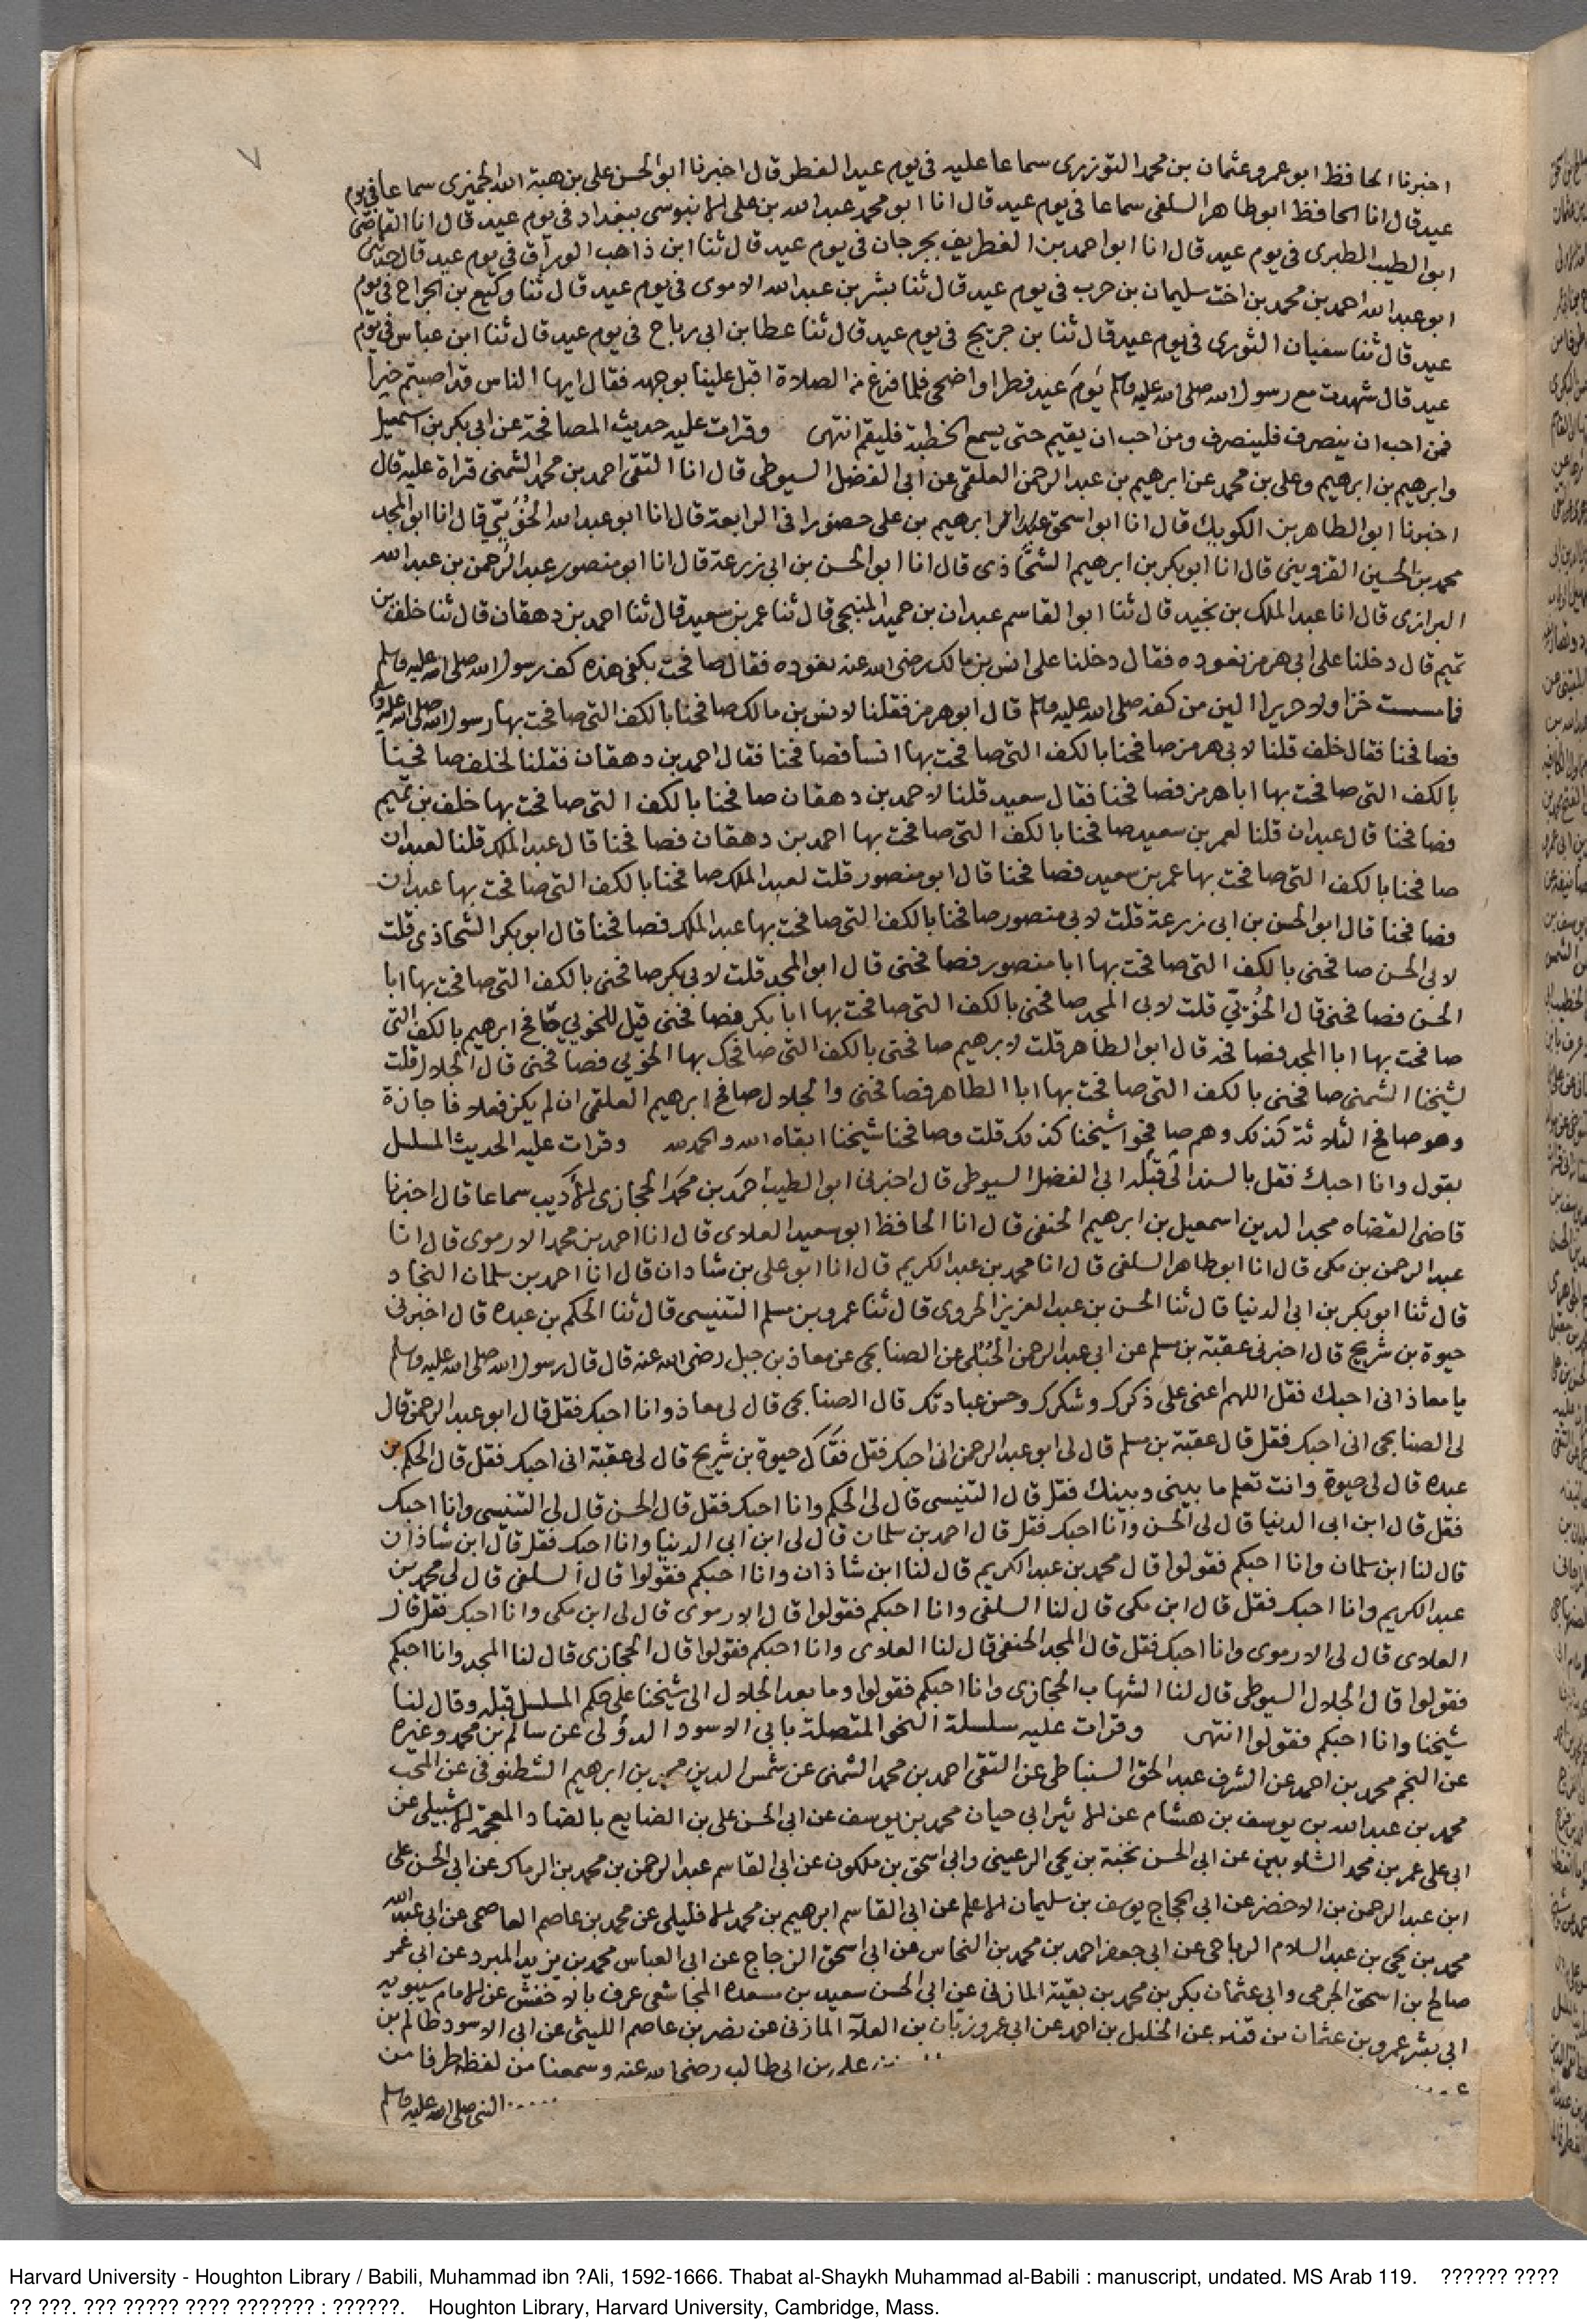 ٧
اخبرنا الحافظ ابو عمرو عثمان بن محمد التوزرى سماعا عليه فى يوم عيد الفطر قال اخبرنا ابو الحسن على بن هبة الله الجميزى سماعا فى يوم
عيد قال انا الحافظ ابو طاهر السلفى سماعا فى يوم عيد قال انا ابو محمد عبد الله بن على الابنوسى ببغداد فى يوم عيد قال انا القاضى
ابو الطيب الطبرى فى يوم عيد قال انا ابو احمد بن الغطريف بجرجان فى يوم عيد قال ثنا ابن ذاهب الوراق فى يوم عيد قال حدثنى
ابو عبد الله احمد بن محمد بن اخت سليمان بن حرب فى يوم عيد قال ثنا بشر بن عبد الله الاموى فى يوم عيد قال ثنا وكيع بن الجراح فى يوم
عيد قال ثنا سفيان الثورى فى يوم عيد قال ثنا بن جريج فى يوم عيد قال ثنا عطا بن ابى رباح فى يوم عيد قال ثنا ابن عباس فى يوم
عيد قال شهدت مع رسول الله صلى الله عليه وسلم يوم عيد فطر او اضحى فلما فرغ من الصلاة اقبل علينا بوجهه فقال ايها الناس قد اصبتم خيرا
فمن احب ان ينصرف فلينصرف ومن احب ان يقيم حتى يسمع الخطبة فليقم انتهى وقرات عليه حديث المصافحة عن ابى بكر بن اسمعيل
وابرهيم بن ابرهيم وعلى بن محمد عن ابرهيم بن عبد الرحمن العلقمى عن ابى الفضل السيوطى قال انا التقى احمد بن محمد الشمنى قراة عليه قال
اخبرنا ابو الطاهر بن الكويك قال انا ابو اسحق ابرهيم بن على حضورا فى الرابعة قال انا ابو عبد الله الخويى قال انا ابو المجد
محمد بن الحسين القزوينى قال انا ابو بكر بن ابرهيم الشحاذى قال انا ابو الحسن بن ابى زرعة قال انا ابو منصور عبد الرحمن بن عبد الله
البزازى قال انا عبد الملك بن نجيد قال ثنا ابو القاسم عبدان بن حميد المنبجى قال ثنا عمر بن سعيد قال ثنا احمد بن دهقان قال ثنا خلف بن
تميم قال دخلنا على ابى هرمز نعوده فقال دخلنا على انس بن مالك رضى الله عنه نعوده فقال صافحت بكفى هذه كف رسول الله صلى الله عليه وسلم
فما مسست خزا ولا حريرا الين من كفه صلى الله عليه وسلم قال ابو هرمز فقلنا لانس بن مالك صافحنا بالكف التى صافحت بها رسول الله صلى الله عليه وسلم
فصافحنا فقال خلف قلنا لابى هرمز صافحنا بالكف التى صافحت بها انسا فصافحنا فقال احمد بن دهقان فقلنا لخلف صافحنا
بالكف التى صافحت بها ابا هرمز فصافحنا فقال سعيد قلنا لاحمد بن دهقان صافحنا بالكف التى صافحت بها خلف بن تميم
فصافحنا قال عبدان قلنا لعمر بن سعيد صافحنا بالكف التى صافحت بها احمد بن دهقان فصافحنا قال عبد الملك قلنا لعبدان
صافحنا بالكف التى صافحت بها عمر بن سعيد فصافحنا قال ابو منصور قلت لعبد الملك صافحنا بالكف التى صافحت بها عبدان
فصافحنا قال ابو الحسن بن ابى زرعة قلت لابى منصور صافحنا بالكف التى صافحت بها عبد الملك فصافحنا قال ابو بكر الشحاذى قلت
لابى الحسن صافحنى بالكف التى صافحت بها ابا منصور فصافحنى قال ابو المجد قلت لابى بكر صافحنى بالكف التى صافحت بها ابا
الحسن فصافحنى قال الخويى قلت لابى المجد صافحنى بالكف التى صافحت بها ابا بكر فصافحنى قيل للخويى صافح ابرهيم بالكف التى
صافحت بها ابا المجد فصافحه قال ابو الطاهر قلت لابرهيم صافحنى بالكف التى صافحك بها الخويى فصافحنى قال الجلال قلت
لشيخنا الشمنى صافحنى بالكف التى صافحت بها ابا الطاهر فصافحنى والجلال صافح ابرهيم العلقمى ان لم يكن فعلا فاجازة
وهو صافح الثلاثة كذلك وهم صافحوا شيخنا كذلك قلت وصافحنا شيخنا ابقاه الله والحمد لله وقرات عليه الحديث المسلسل
بقول وانا احبك فقل بالسند الى قبله ابى الفضل السيوطى قال اخبرنى ابو الطيب احمد بن محمد الحجازى الاديب سماعا قال اخبرنا
قاضى القضاه مجد الدين اسمعيل بن ابرهيم الحنفى قال انا الحافظ ابو سعيد العلاى قال انا احمد بن محمد الارموى قال انا
عبد الرحمن بن مكى قال انا ابو طاهر السلفى قال انا محمد بن عبد الكريم قال انا ابو على بن شاذان قال انا احمد بن سلمان النجاد
قال ثنا ابو بكر بن ابى الدنيا قال ثنا الحسن بن عبد العزيز الجروى قال ثنا عمرو بن مسلم التنيسى قال ثنا الحكم بن عبده قال اخبرنى
حيوة بن شريح قال اخبرنى عقبة بن مسلم عن ابى عبد الرحمن الحبلى عن الصنابحى عن معاذ بن جبل رضى الله عنه قال قال رسول الله صلى الله عليه وسلم
يا معاذ انى احبك فقل اللهم اعنى على ذكرك وشكرك وحسن عبادتك قال الصنابحى قال لى معاذ وانا احبك فقل قال ابو عبد الرحمن قال
لى الصنابحى انى احبك فقل قال عقبة بن مسلم قال لى ابو عبد الرحمن انى احبك فقل فقال حيوة بن شريح قال لى عقبة انى احبك فقل قال الحكم بن
عبده قال لى حيوة وانت تعلم ما بينى وبينك فقل قال التنيسى قال لى الحكم وانا احبك فقل قال الحسن قال لى التنيسى وانا احبك
فقل قال ابن ابى الدنيا قال لى الحسن وانا احبك فقل قال احمد بن سلمان قال لى ابن ابى الدنيا وانا احبك فقل قال ابن شاذان
قال لنا ابن سلمان وانا احبكم فقولوا قال محمد بن عبد الكريم قال لنا ابن شاذان وانا احبكم فقولوا قال السلفى قال لى محمد بن
عبد الكريم وانا احبك فقل قال ابن مكى قال لنا السلفى وانا احبكم فقولوا قال الارموى قال لى ابن مكى وانا احبك فقل قال
العلاى قال لى الارموى وانا احبك فقل قال المجد الحنفى قال لنا العلاى وانا احبكم فقولوا قال الحجازى قال لنا المجد وانا احبكم
فقولوا قال الجلال السيوطى قال لنا الشهاب الحجازى وانا احبكم فقولوا وما بعد الجلال الى شيخنا على حكم المسلسل قبله وقال لنا
شيخنا وانا احبكم فقولوا انتهى وقرات عليه سلسلة النحو المتصلة بابى الاسود الدؤلى عن سالم بن محمد وغيره
عن النجم محمد بن احمد عن الشرف عبد الحق السنباطى عن التقى احمد بن محمد الشمنى عن شمس الدين محمد بن ابرهيم الشطنوفى عن المحب
محمد بن عبد الله بن يوسف بن هشام عن الاثير ابى حيان محمد بن يوسف عن ابى الحسن على بن الضايع بالضاد المعجمة الاشبيلى عن
ابى على عمر بن محمد الشلوبين عن ابى الحسن نجبة بن يحيى الرعينى وابى اسحق بن ملكون عن ابى القاسم عبد الرحمن بن محمد بن الرماك عن ابى الحسن على
ابن عبد الرحمن بن الاخضر عن ابى الحجاج يوسف بن سليمان الاعلم عن ابى القاسم ابرهيم بن محمد الافليلى عن محمد بن عاصم العاصمى عن ابى عبد الله
محمد بن يحيى بن عبد السلام الرباحى عن ابى جعفر احمد بن محمد بن النحاس عن ابى اسحق الزجاج عن ابى العباس محمد بن يزيد المبرد عن ابى عمر
صالح بن اسحق الجرمى وابى عثمان بكر بن محمد بن بقية المازنى عن ابى الحسن سعيد بن مسعده المجاشعى عرف بالاخفش عن الامام سيبويه
ابى بشر عمرو بن عثمان بن قنبر عن الخليل بن احمد عن ابى عمرو زبان بن العلآ المازنى عن نصر بن عاصم الليثى عن ابى الاسود ظالم بن
على بن ابى طالب رضى الله عنه وسمعنا من لفظه طرفا من
النبى صلى الله عليه وسلم
Harvard University - Houghton Library / Babili, Muhammad ibn ?Ali, 1592-1666. Thabat al-Shaykh Muhammad al-Babili : manuscript, undated. MS Arab 119. ?????? ????
?? ???. ??? ????? ???? ??????? : ??????. Houghton Library, Harvard University, Cambridge, Mass.